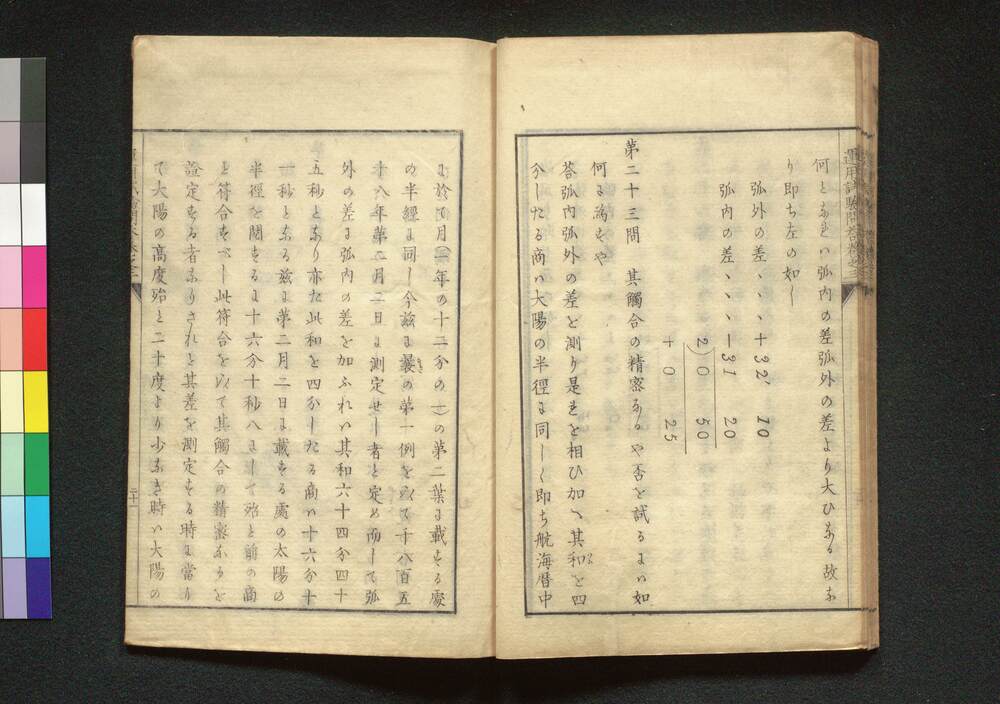 何となれハ弧内の差弧外の差より大ひなる故な
り即ち左の如し
弧外の差、、+32′ 10
弧内の差、、−31 20
2) 0 50
+0 25
第二十三問 其觸合の精密なるや否を試るにハ如
何に為すや
答弧内弧外の差を測り是を相ひ加へ其和を四
分したる商ハ大陽の半徑に同しく即ち航海暦中
に於て月(一年の十二分の一)の第二葉に載する處
の半經に同し今茲に曩の第一例を以て千八百五
十八年第二月二日に測定せし者と定め而して弧
外の差に弧内の差を加ふれハ其和六十四分四十
五秒となり亦た此和を四分したる商ハ十六分十
一秒となる茲に第二月二日に載する處の太陽の
半徑を閲するに十六分十秒八にして殆と前の商
と符合すべし此符合を以て其觸合の精密なるを
證定する者なりされと其差を測定する時に當り
て大陽の高度殆と二十度より少なき時ハ大陽の
二十一